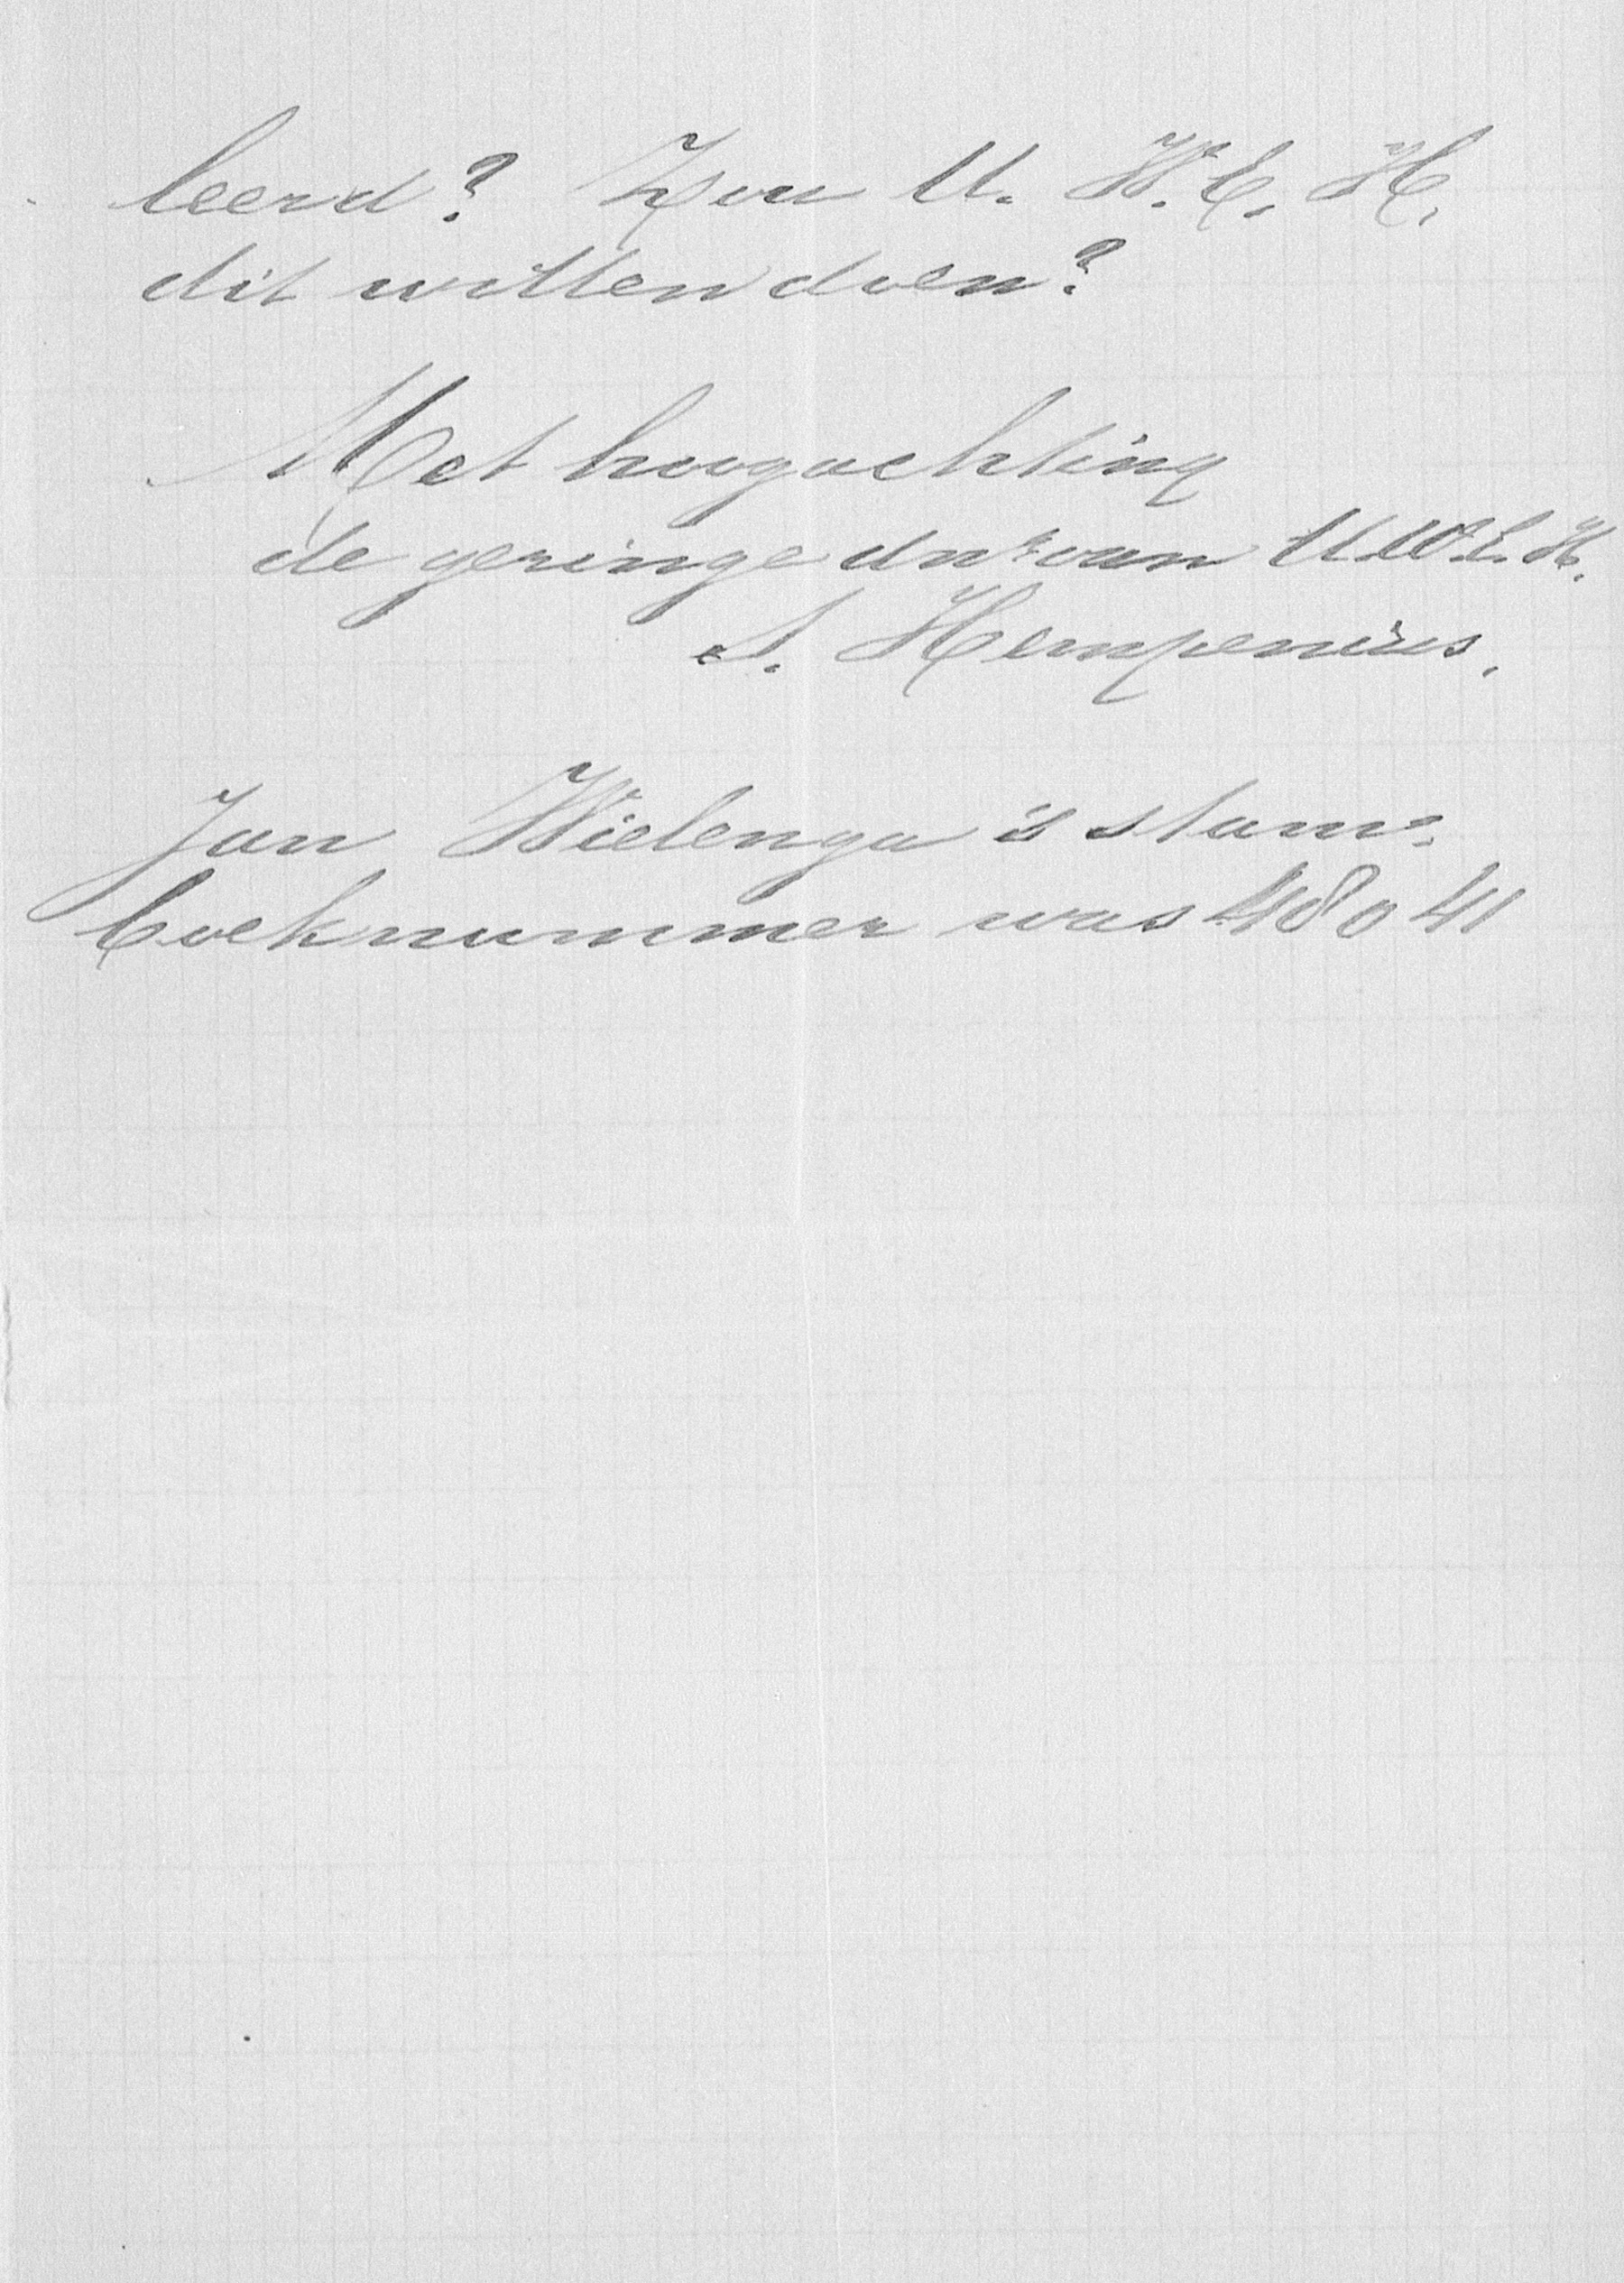 leerd? Zou U. W. E. H.
dit willen doen?
Met hoogachting
de geringe dnr van U W. E. H.
S. Hempenius.
Jan Wielenga 's stam=
boeknummer was 48041